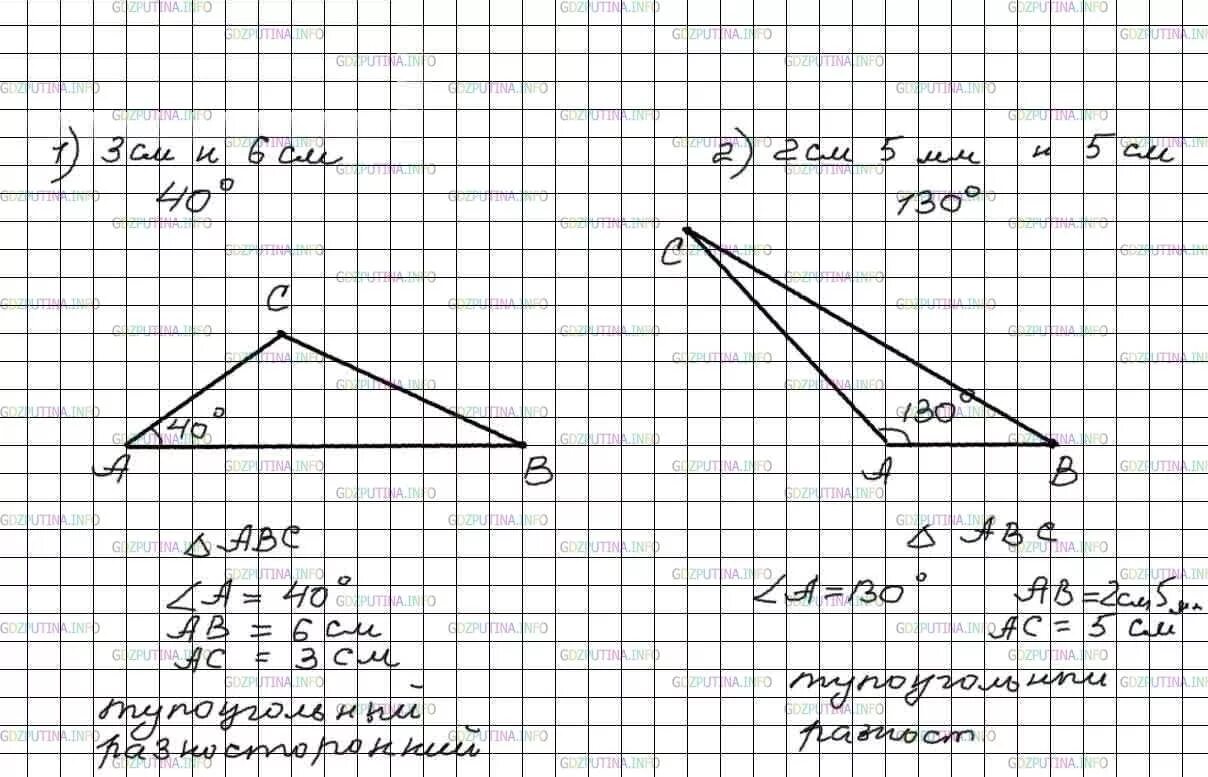 1) 3 см и 6 см
40°
C
40°
A
B
△ ABC
∠A = 40°
AB = 6 см
AC = 3 см
тупоугольный
разносторонний
2) 2 см 5 мм и 5 см
130°
C
130°
A
B
△ ABC
∠A = 130° AB = 2 см 5 мм
AC = 5 см
тупоугольный
разност
GDZPUTINA.INFO